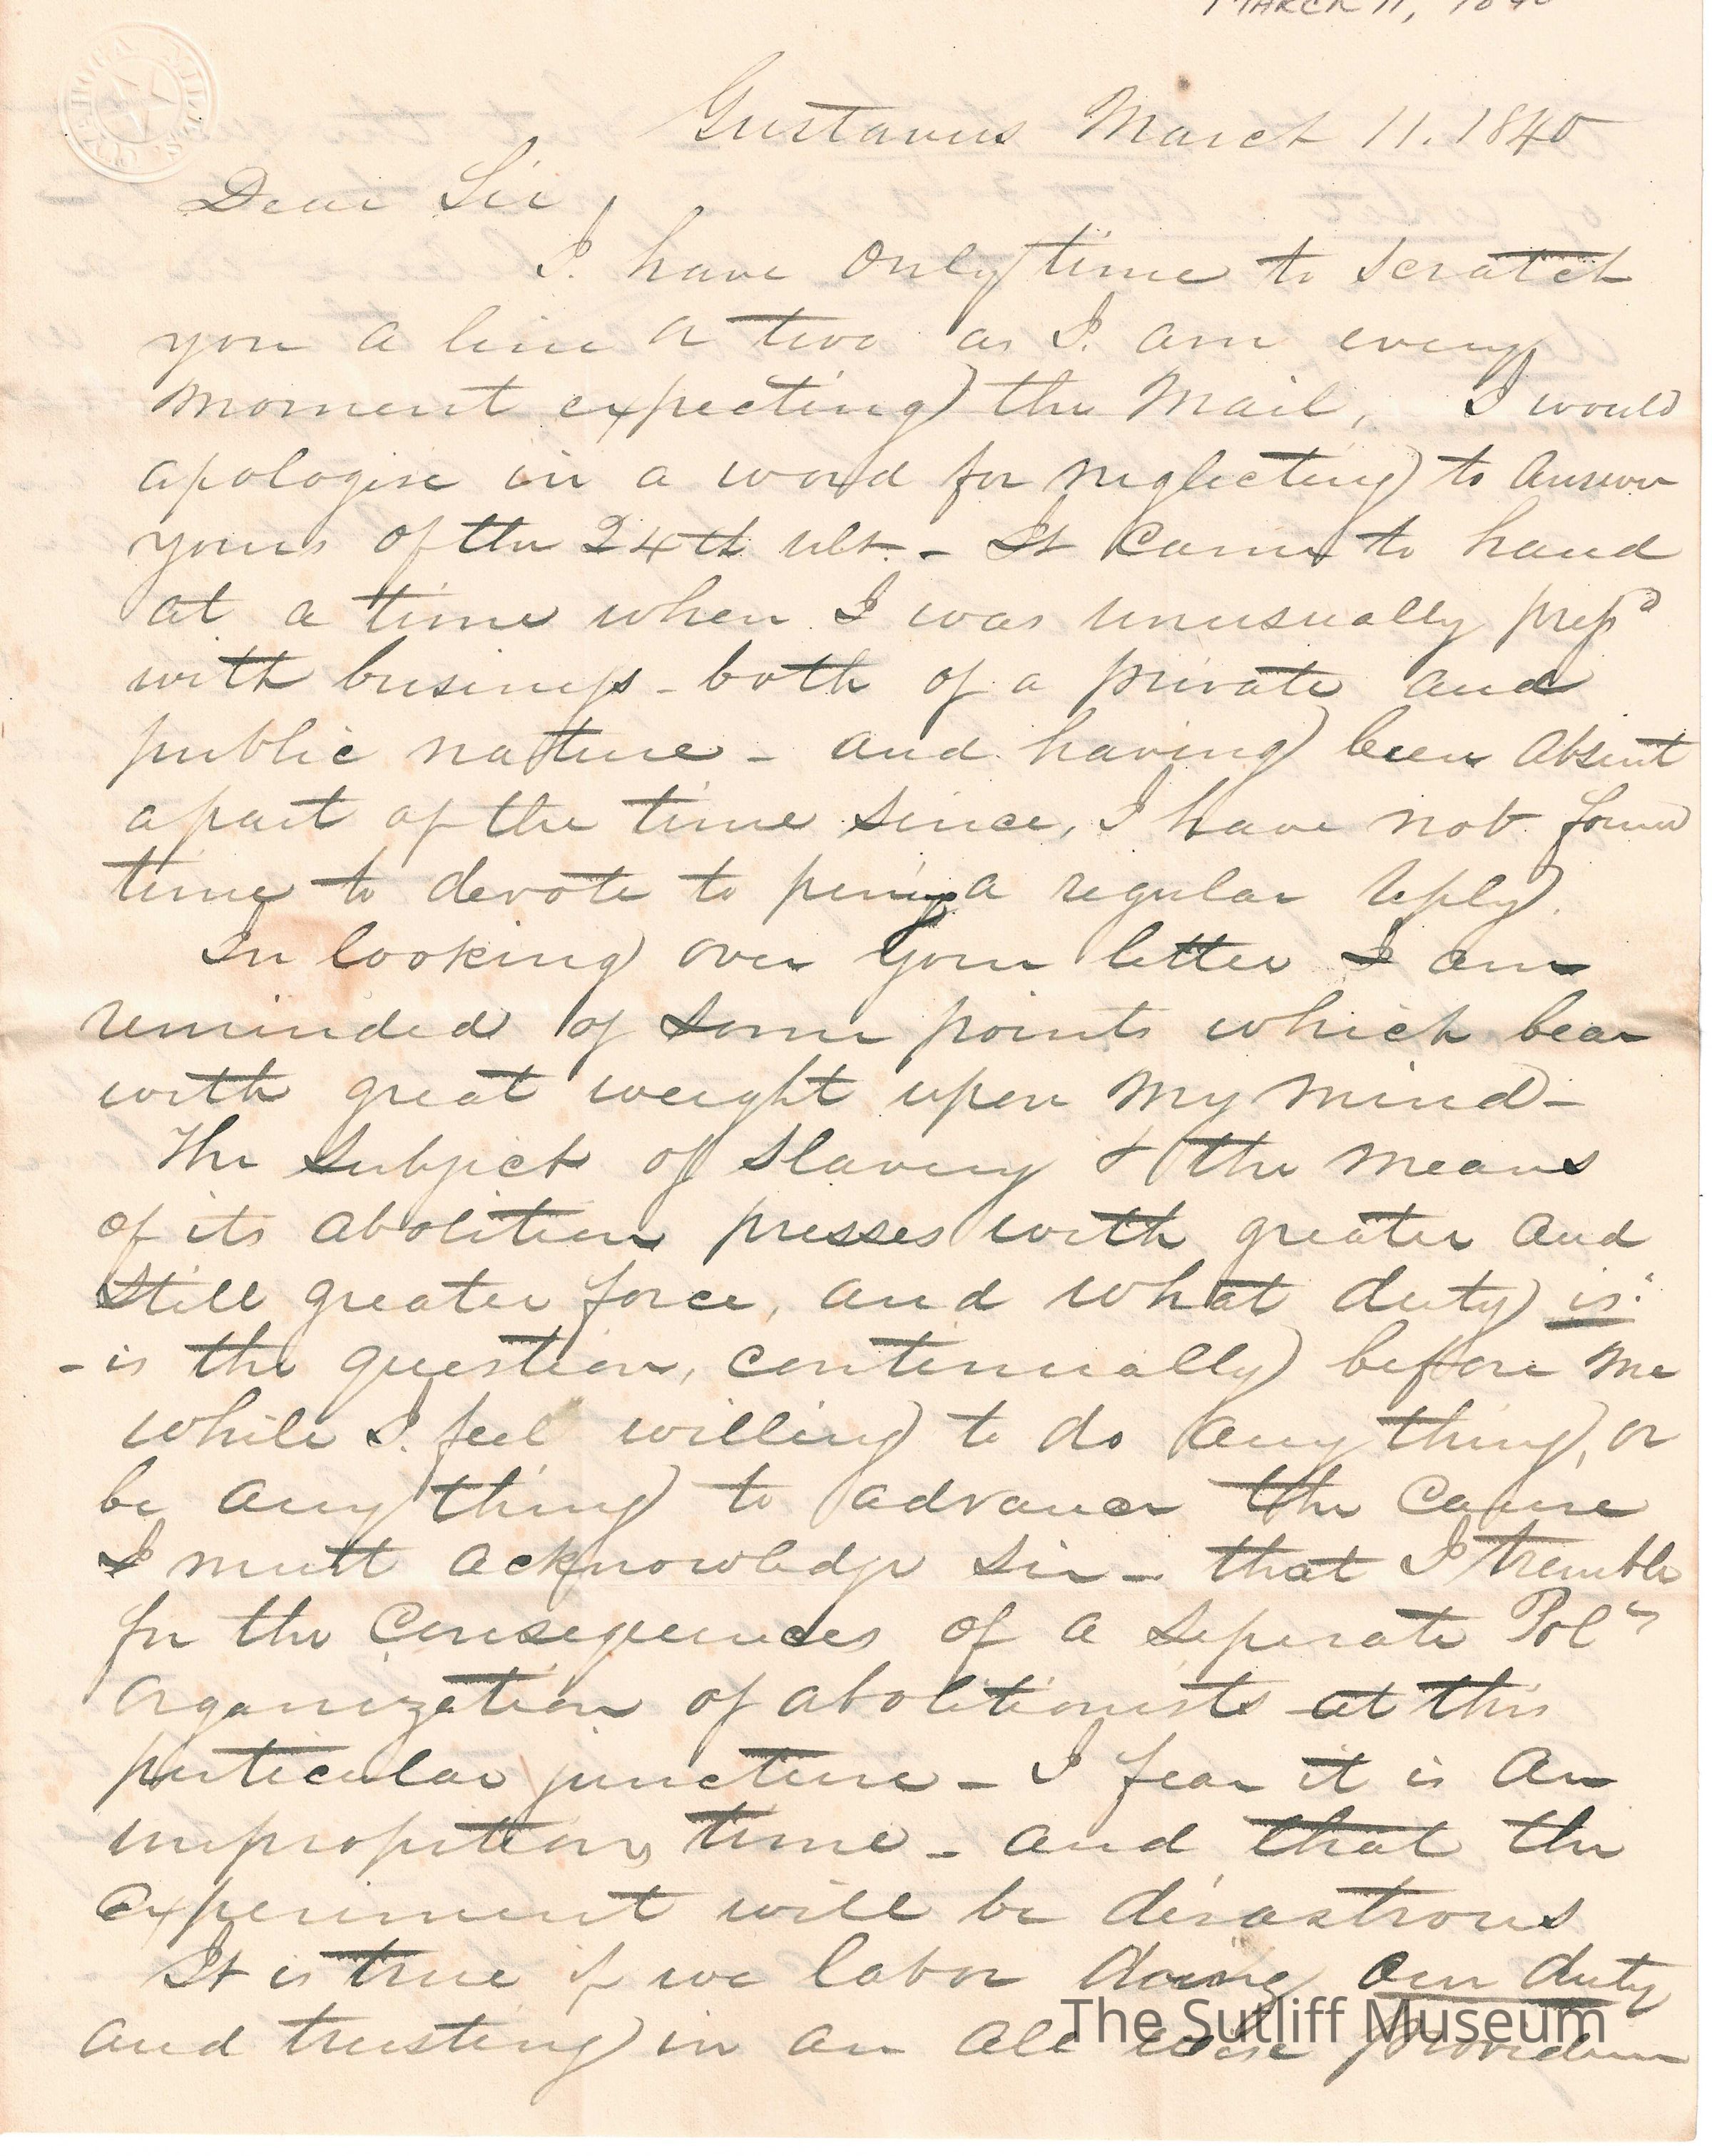 MARCH 11, 1840
Gustavus March 11. 1840
Dear Sir,
I. have only time to scratch
you a line or two as I. am every
moment expecting the Mail, I would
apologise in a word for neglecting to answer
yours of the 24th ult. - It came to hand
at a time when I was unusually presd
with business - both of a private and
public nature - and having been absent
a part of the time since, I have not found
time to devote to pening a regular reply.
In looking over your letter I am
reminded of some points which bear
with great weight upon my mind -
The subject of slavery & the means
of its abolition presses with greater and
still greater force, and what duty is:
- is the question, continually before me
while I. feel willing to do any thing, or
be any thing to advance the cause
I must acknowledge sir - that I tremble
for the consequences of a seperate Pol
organization of abolitionists at this
particular juncture - I fear it is an
unpropitious time - and that the
experiment will be disastrous
It is true if we labor doing our duty
and trusting in an all wise Providence
The Sutliff Museum